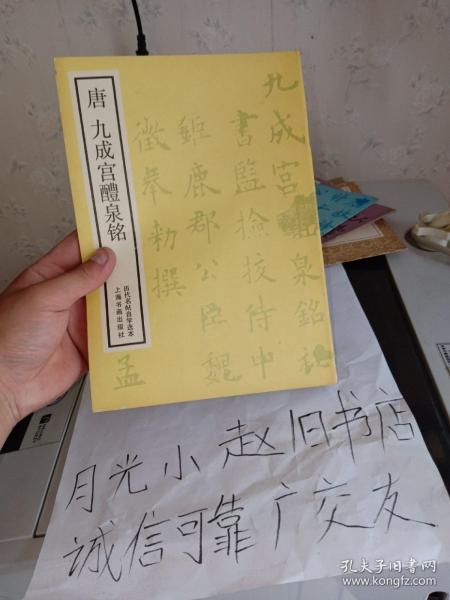 唐 九成宫醴泉铭
历代名帖自学选本
上海书画出版社
九成宫醴泉铭
書監檢挍侍中
鉅鹿郡公臣魏
徵奉勅撰
孟
月光小赵旧书店
诚信可靠广交友
孔夫子旧书网
www.kongfz.com